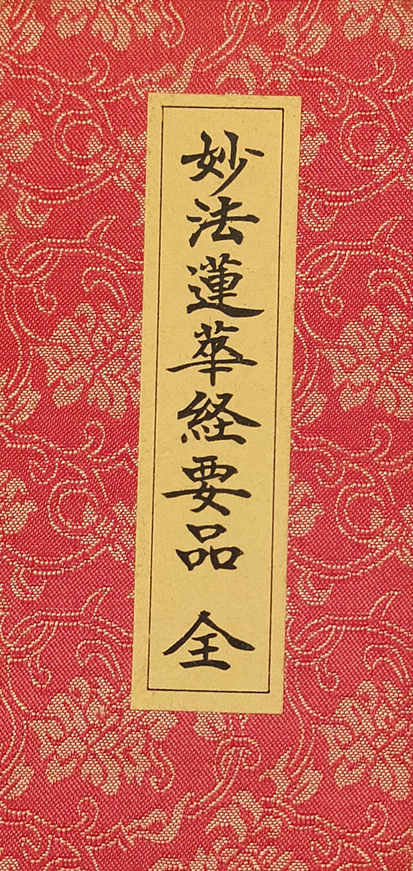 妙法蓮華経要品 全